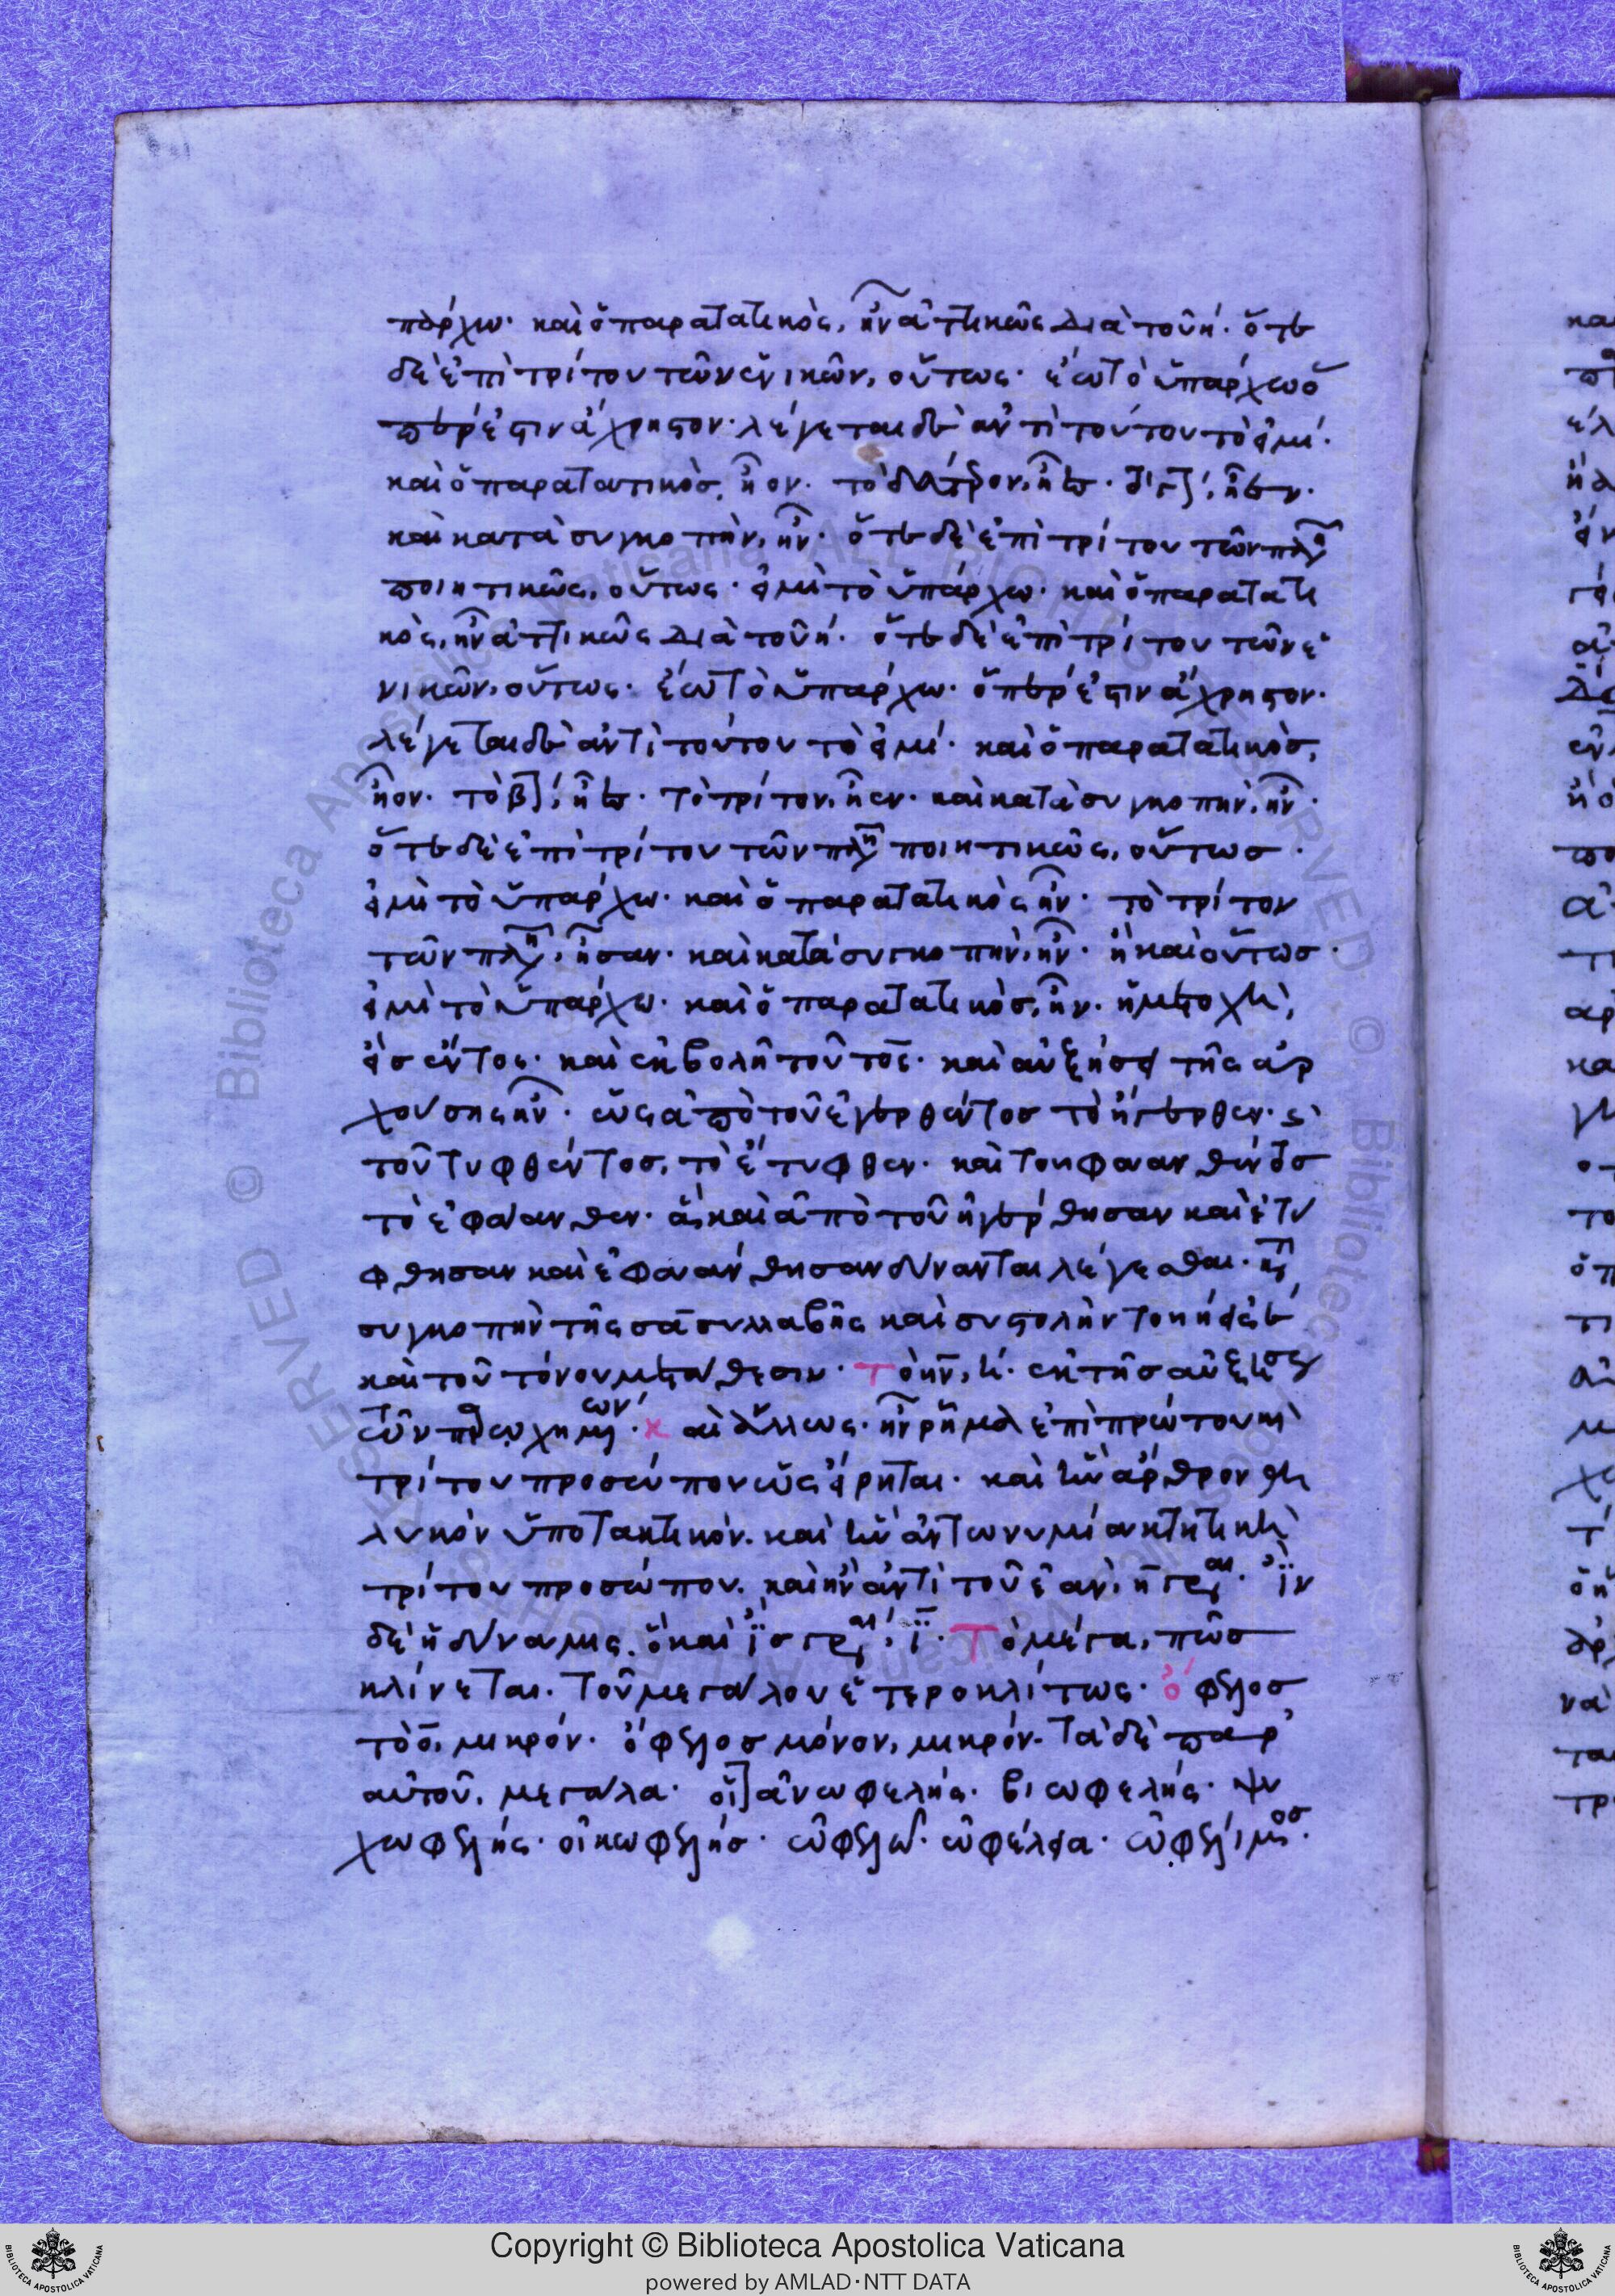 πάρχω· καὶ ὁ παρατατικὸς, ἦν ἀττικῶς διὰ τοῦ ή· ὅτε
δὲ ἐπὶ τρίτου τῶν ἑνικῶν, οὕτως· ἔω τὸ ὑπάρχω ὅ
περ ἐστιν ἄχρηστον· λέγεται δὲ ἀντὶ τούτου τὸ εἰμί·
καὶ ὁ παρατατικὸσ, ἦον· τὸ δεύτερον, ἦες· ἦεν·
καὶ κατὰ συγκοπὴν, ἦν· ὅτε δὲ ἐπὶ τρίτου τῶν πλη
ποιητικῶς, οὕτως· εἰμὶ τὸ ὑπάρχω· καὶ ὁ παρατατι
κὸς, ἦν ἀττικῶς διὰ τοῦ ή· ὅτε δὲ ἐπὶ τρίτου τῶν ἑ
νικῶν, οὕτως· ἔω τὸ ὑπάρχω· ὅπερ ἐστιν ἄχρηστον·
λέγεται δὲ ἀντὶ τούτου τὸ εἰμί· καὶ ὁ παρατατικὸσ,
ἦον· τὸ β, ἦες· τὸ τρίτον, ἦεν· καὶ κατὰ συγκοπὴν, ἦν·
ὅτε δὲ ἐπὶ τρίτου τῶν πλη ποιητικῶς, οὕτωσ·
εἰμὶ τὸ ὑπάρχω· καὶ ὁ παρατατικὸς ἦν· τὸ τρίτον
τῶν πλη, ἦσαν· καὶ κατὰ συγκοπὴν, ἦν· ἢ καὶ οὕτωσ·
εἰμὶ τὸ ὑπάρχω· καὶ ὁ παρατατικὸσ, ἦν· ἡ μετοχὴ,
εἰσέντος· καὶ ἐκβολῆ τοῦ τος· καὶ αὐξήσει τῆς ἀρ
χούσης ἦν· ὡς ἀπὸ τοῦ ἐγερθέντοσ τὸ ἤγερθεν· κ
τοῦ τυφθέντοσ, τὸ ἔτυφθεν· καὶ τοῦ φαανθέντοσ
τὸ ἐφάανθεν· ἃ καὶ ἀπὸ τοῦ ἠγέρθησαν καὶ ἐτύ
φθησαν καὶ ἐφαάνθησαν δύνανται λέγεσθαι· κτ
συγκοπὴν τῆς σα συλλαβῆς καὶ συστολὴν τοῦ η εἰς ε
καὶ τοῦ τόνου μετάθεσιν· τὸ ην, η· ἐκ τῆσ αὐξήσε
τῶν παρωχημων· καὶ ἄλλως· ἦν ρῆμα ἐπὶ πρώτου κ
τρίτου προσώπου ὡς εἴρηται· καὶ ἣν ἄρθρον θη
λυκὸν ὑποτακτικόν· καὶ ἣν ἀντωνυμίαν κτητικὴ
τρίτου προσώπου· καὶ ἢν ἀντὶ τοῦ ἐὰν, η γραι· ἲν
δὲ ἡ δύναμις, ὃ καὶ ἲσ γραι, ϊ· Τὸ μέγα, πῶσ
κλίνεται· τοῦ μεγάλου ἑτεροκλίτως· ὄφελοσ
τὸ ο, μικρόν· ὄφελοσ μόνον, μικρόν· τὰ δὲ παρ'
αὐτοῦ, μεγάλα· οἷ ἀνωφελής· βιωφελής· ψυ
χωφελής· οἰκωφελήσ· ὠφελῶ· ὠφέλεια· ὠφέλιμοσ·
Copyright © Biblioteca Apostolica Vaticana
powered by AMLAD·NTT DATA